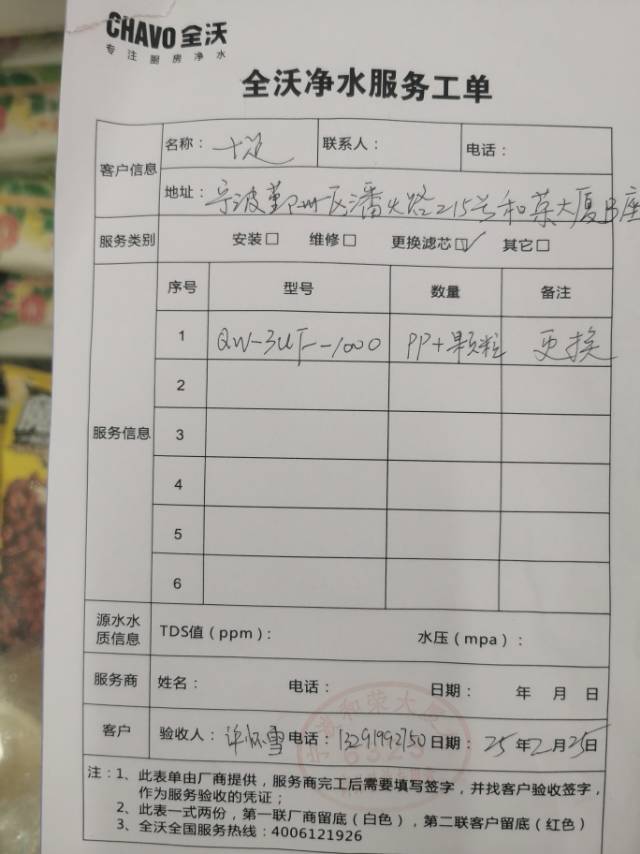 CHAVO 全沃
专注厨房净水
全沃净水服务工单
客户信息
名称：
联系人：
电话：
地址：宁波鄞州区潘火路215号和荣大厦B座
服务类别
安装□ 维修□ 更换滤芯☑ 其它□
服务信息
序号 型号 数量 备注
1 QW-3UF-1000 PP+颗粒 更换
2
3
4
5
6
源水水质信息
TDS值（ppm）： 水压（mpa）：
服务商 姓名： 电话： 日期： 年 月 日
客户 验收人：许怀雪 电话：13291992750 日期：25年2月25日
注：1、此表单由厂商提供，服务商完工后需要填写签字，并找客户验收签字，
作为服务验收的凭证；
2、此表一式两份，第一联厂商留底（白色），第二联客户留底（红色）
3、全沃全国服务热线：4006121926